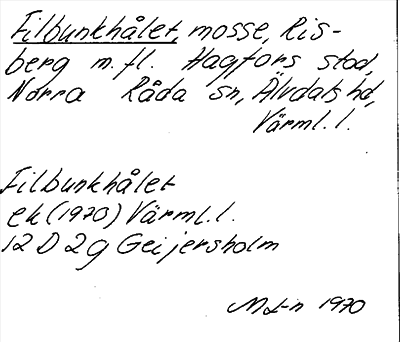 Filbunkhålet, mosse, Ris-
berg m.fl. Hagfors stad,
Norra Råda sn, Älvdals hd,
Värml. l.
Filbunkhålet
ek (1970) Värml. l.
12 D 2g Geijersholm
1970